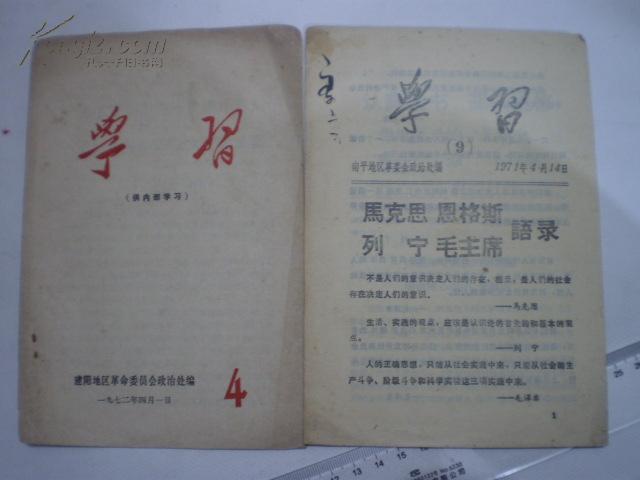 學習
(供内部学习)
建陽地区革命委員会政治处編
一九七二年四月一日
4
學習
(9)
南平地区革委会政治处編
1971年4月14日
馬克思 恩格斯
列宁 毛主席
語录
不是人们的意识决定人们的存在，相反，是人们的社会
存在决定人们的意识。
——马克思
生活、实践的观点，应该是认识论的首先的和基本的观
点。
——列宁
人的正确思想，只能从社会实践中来，只能从社会的生
产斗争、阶级斗争和科学实验这三项实践中来。
——毛泽东
1